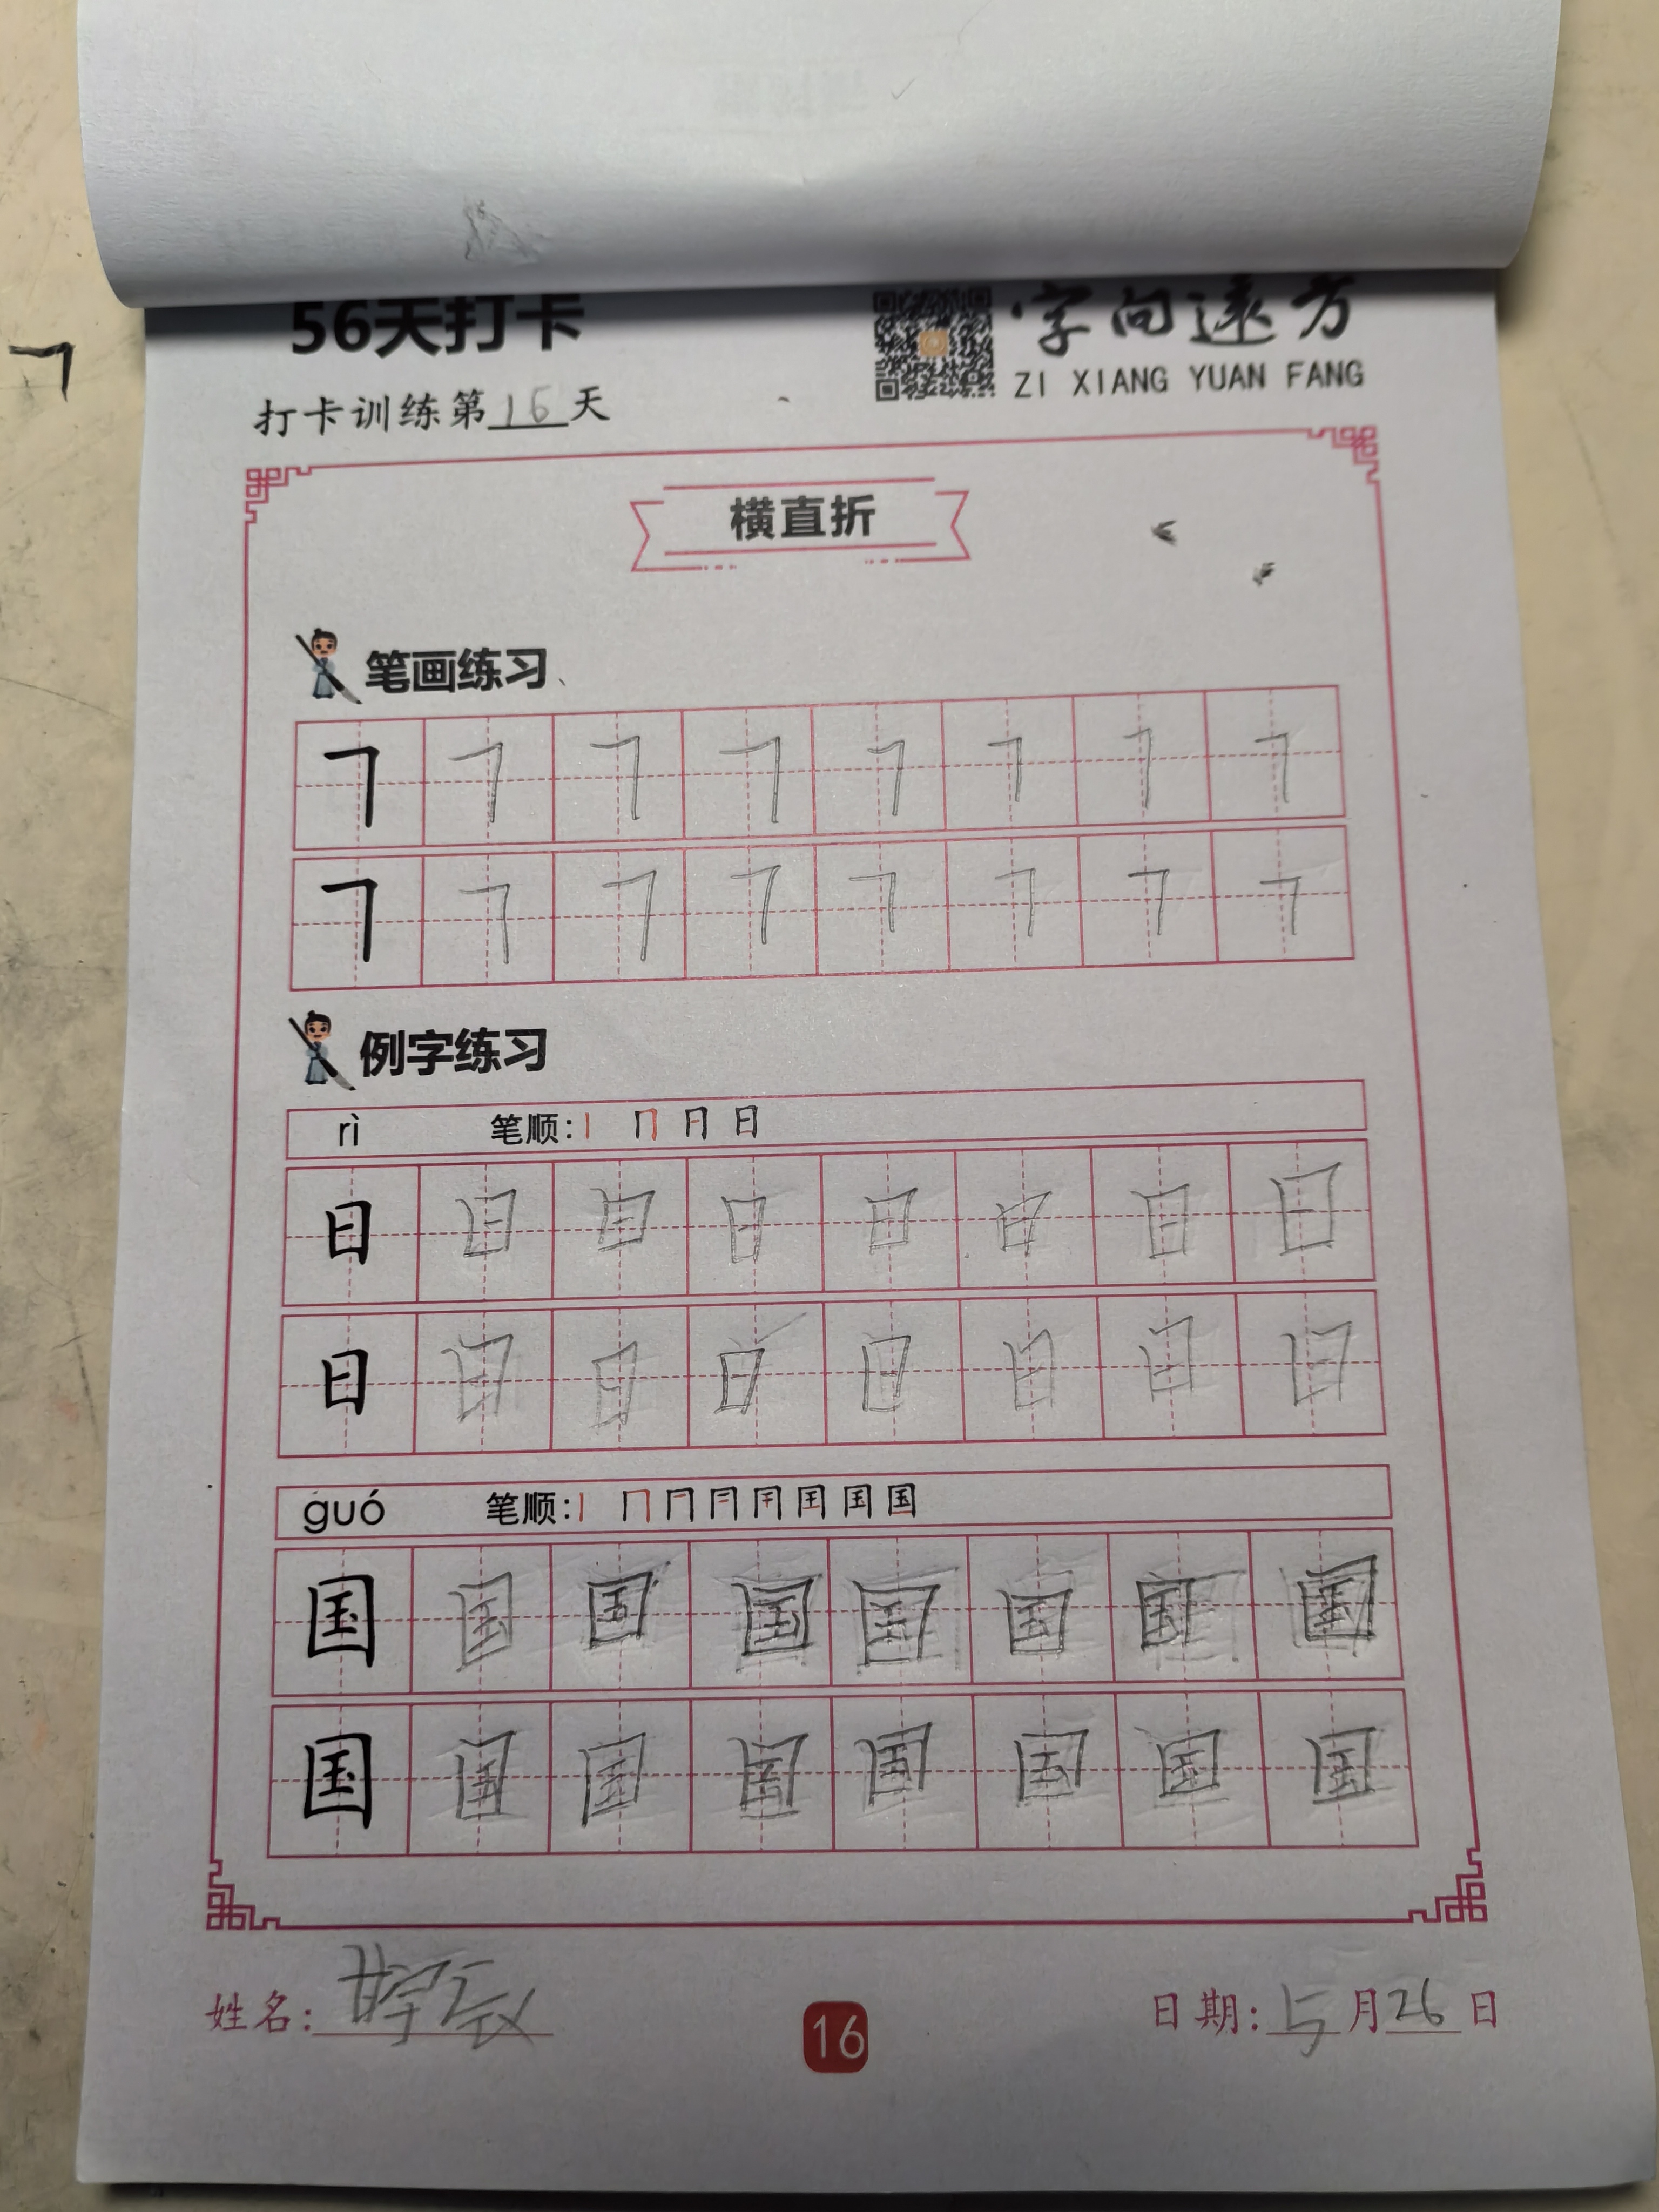 56天打卡
字向远方
ZI XIANG YUAN FANG
打卡训练第16天
横直折
笔画练习
㇕ ㇕ ㇕ ㇕ ㇕ ㇕ ㇕ ㇕
㇕ ㇕ ㇕ ㇕ ㇕ ㇕ ㇕ ㇕
例字练习
rì 笔顺:
日 日 日 日 日 日 日 日
日 日 日 日 日 日 日 日
guó 笔顺:
国 国 国 国 国 国 国 国
国 国 国 国 国 国 国 国
姓名:
16
日期: 5月26日